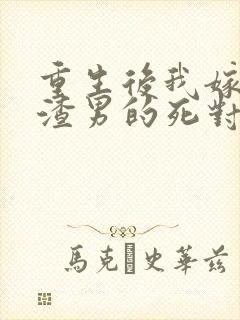 重生後我嫁
渣男的死對
馬克 史華茲